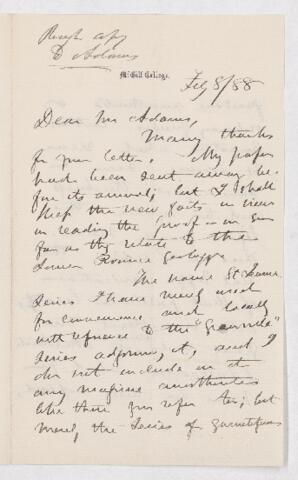 Rough copy
D Adams
McGill College.
Feb 8/88
Dear Mr Adams,
Many thanks
for your letter. My paper
had been sent away be-
fore its arrival; but I shall
keep the new facts in view
in reading the proof — in so
far as they relate to the
Lower Province
The name St
Series I have merely used
for convenience and locally
with reference to the "Grenville"
Series adjoining it, and I
do not include in it
any massive anorthosites
like those you refer to; but
merely the Series of garnetiferous